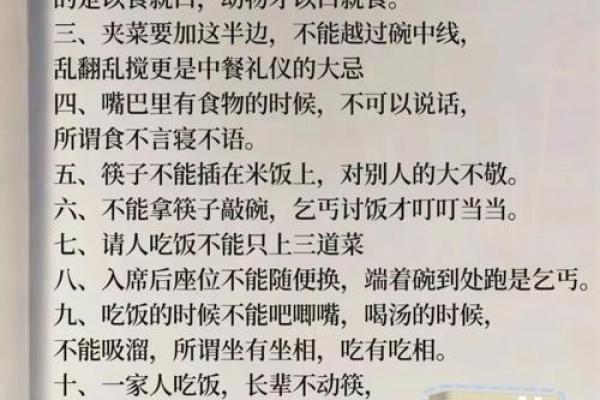 的是以食就口，动物才以口就食。
三、夹菜要加这半边，不能越过碗中线，
乱翻乱搅更是中餐礼仪的大忌
四、嘴巴里有食物的时候，不可以说话，
所谓食不言寝不语。
五、筷子不能插在米饭上，对别人的大不敬。
六、不能拿筷子敲碗，乞丐讨饭才叮叮当当。
七、请人吃饭不能只上三道菜
八、入席后座位不能随便换，端着碗到处跑是乞丐。
九、吃饭的时候不能吧唧嘴，喝汤的时候，
不能吸溜，所谓坐有坐相，吃有吃相。
十、一家人吃饭，长辈不动筷，